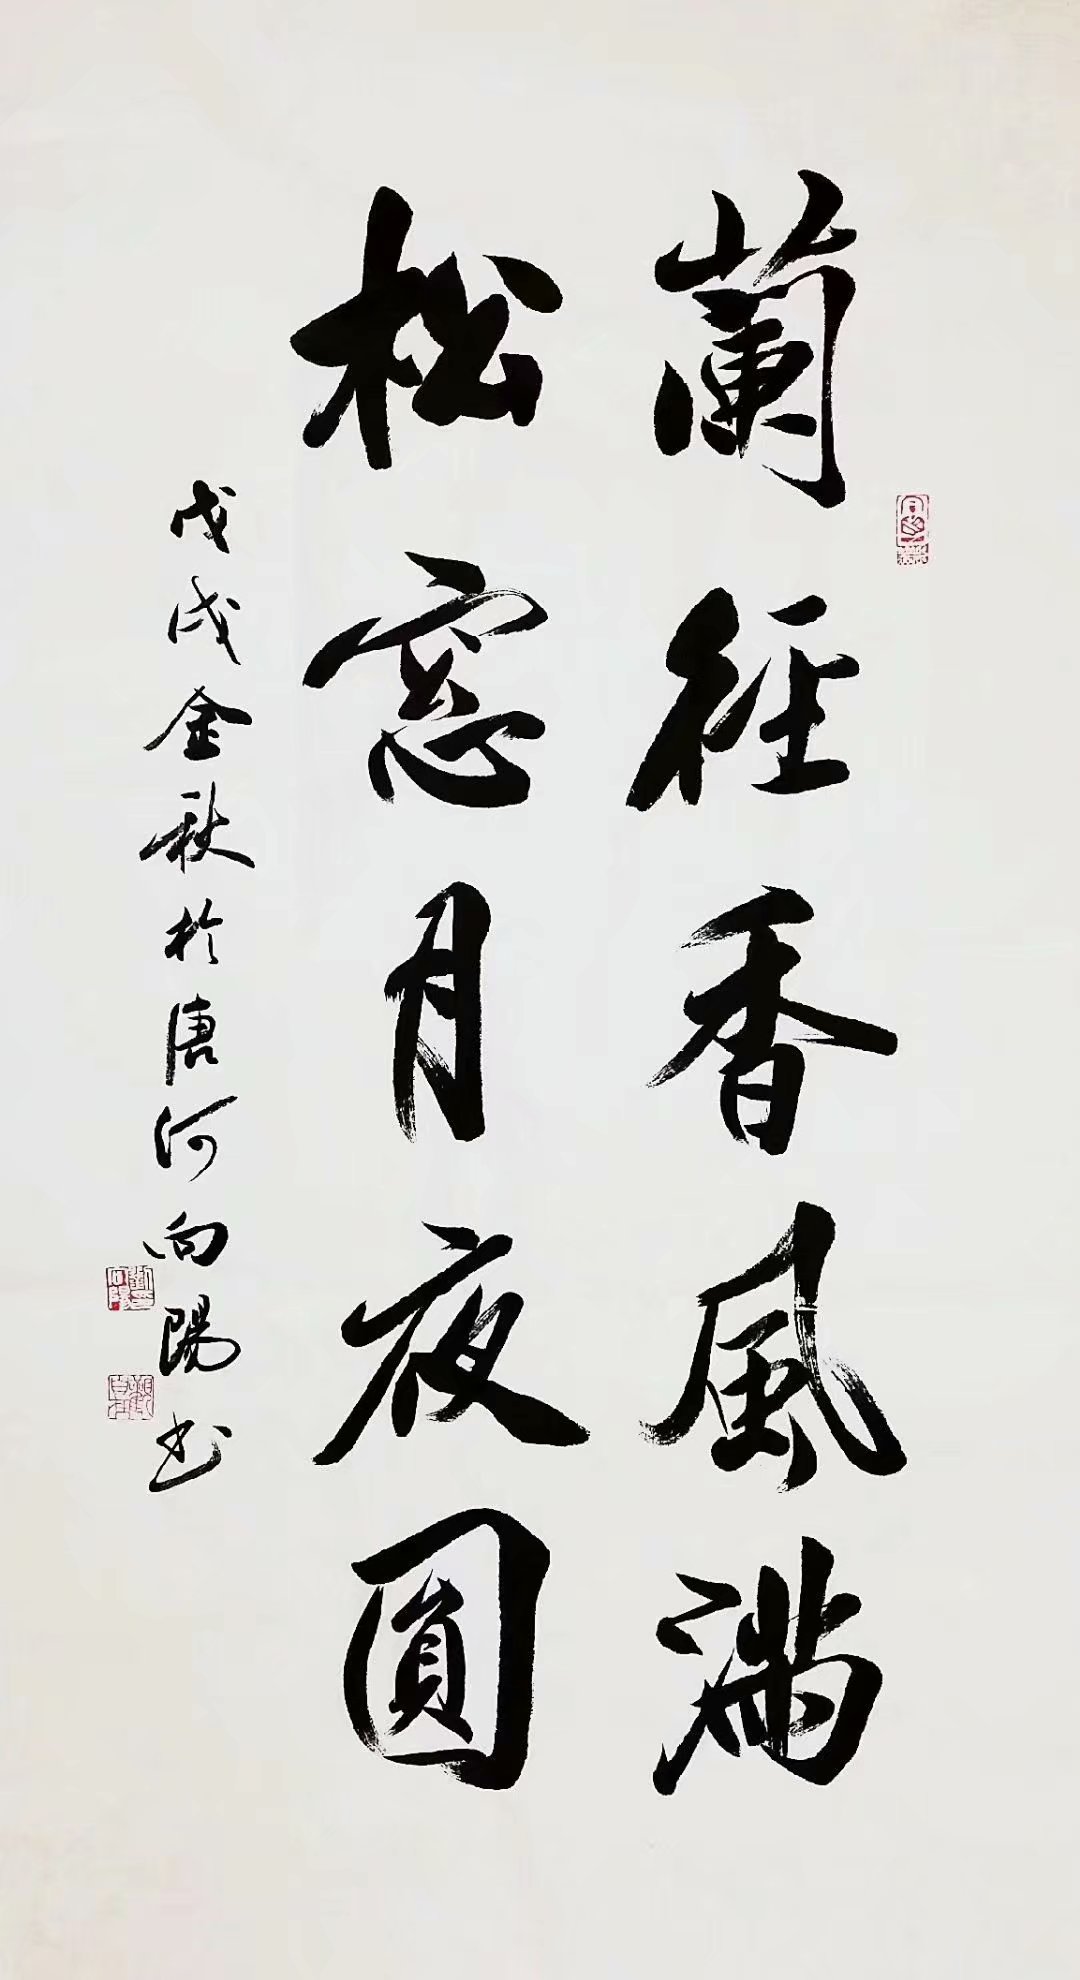 蘭徑香風滿
松窓月夜圓
戊戌金秋於唐河向陽书